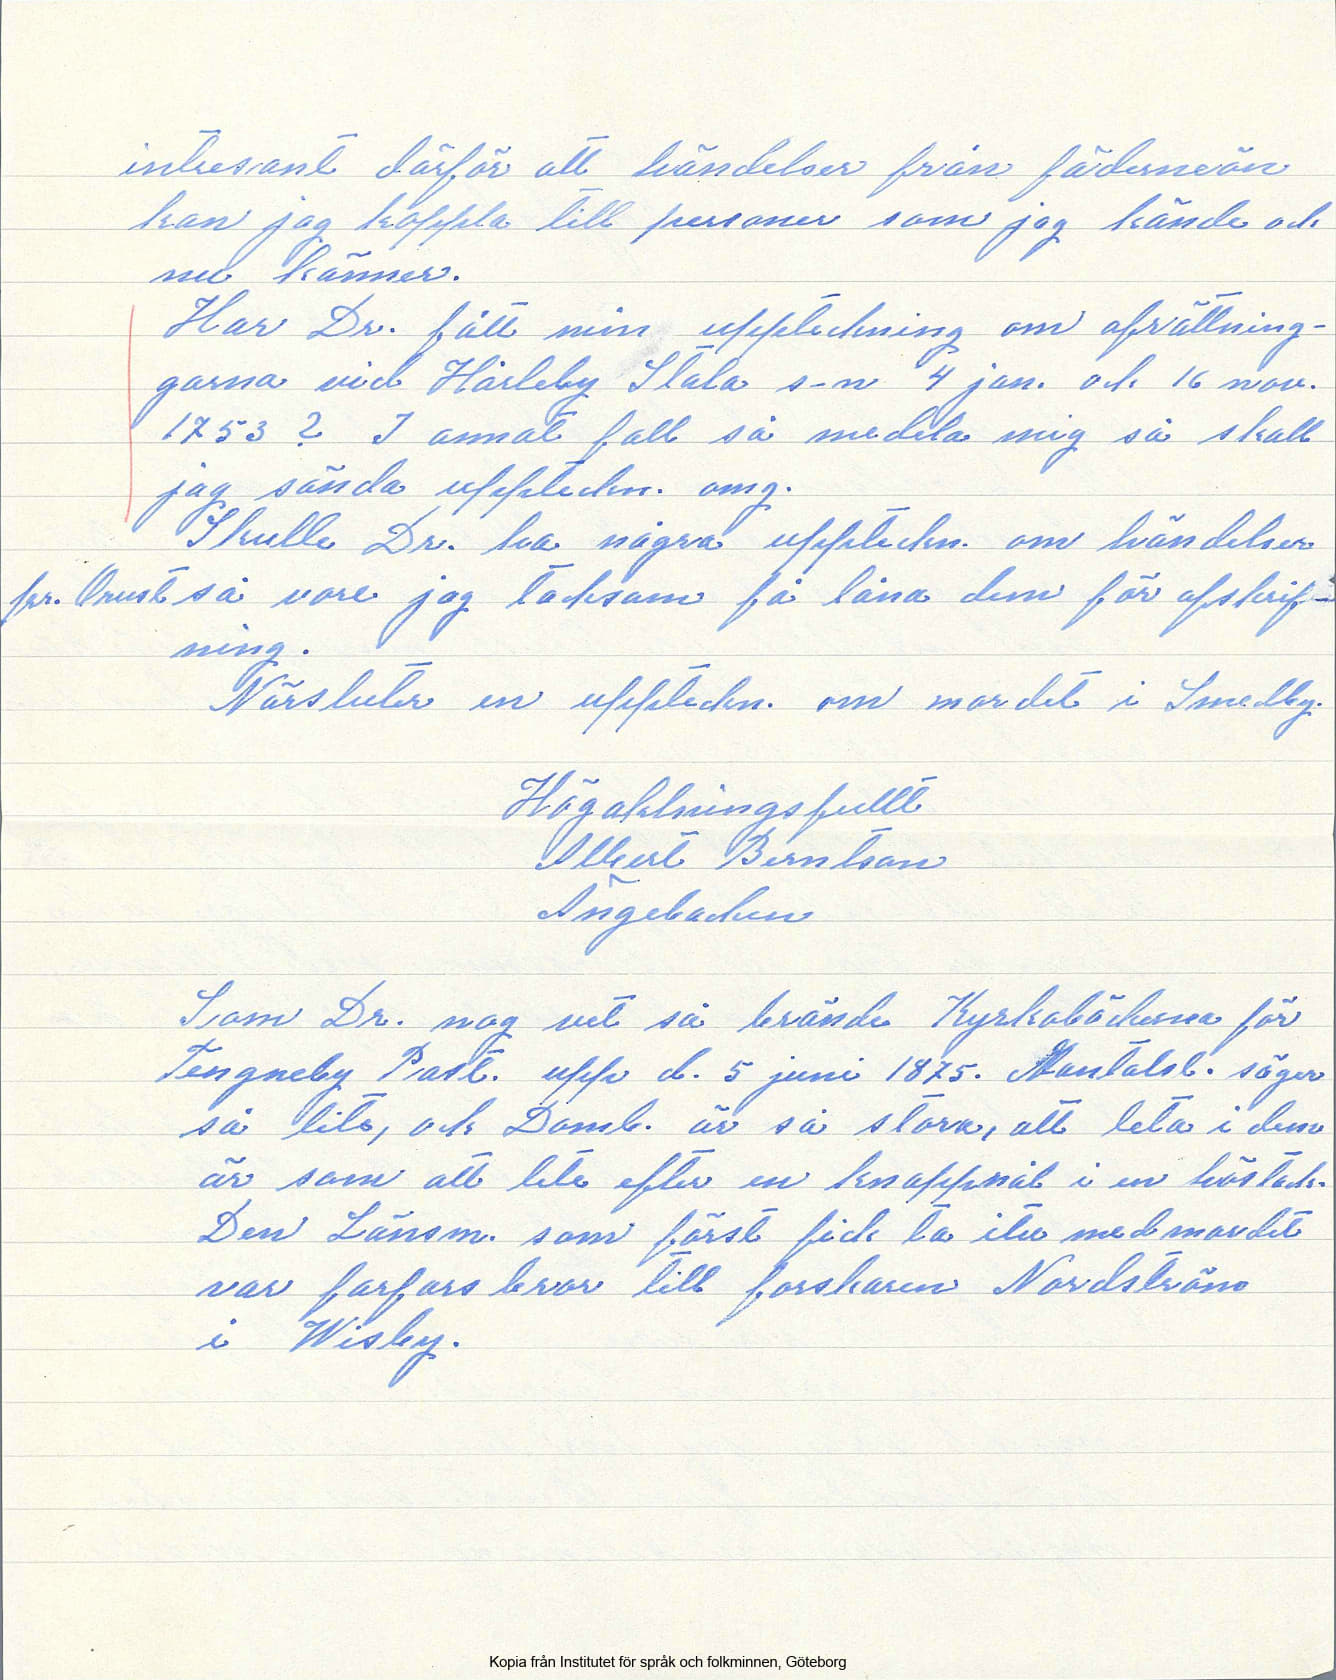 intresant därför att händelser från fäderneön
kan jag koppla till personer som jag kände och
nu känner.
Har Dr. fått min uppteckning om afrättning-
garna vid Hårleby Stala s-n 4 jan. och 16 nov.
1753? I annat fall så medela mig så skall
jag sända uppteckn. omg.
Skulle Dr. ha några uppteckn. om händelser
fr. Orust så vore jag tacksam få låna dem för afskrif-
ning.
Närsluter en uppteckn. om mordet i Smedby.
Högaktningsfullt
Albert Berntson
Ängebacken
Som Dr. nog vet så brände Kyrkoböckerna för
Tengneby Past. upp d. 5 juni 1875. Mantalsl. säger
så lite, och Domb. är så stora, att leta i dem
är som att lete efter en knappnål i en höstack.
Den Länsm. som först fick ta itu med mordet
var farfars bror till forskaren Nordström
i Wisby.
Kopia från Institutet för språk och folkminnen, Göteborg